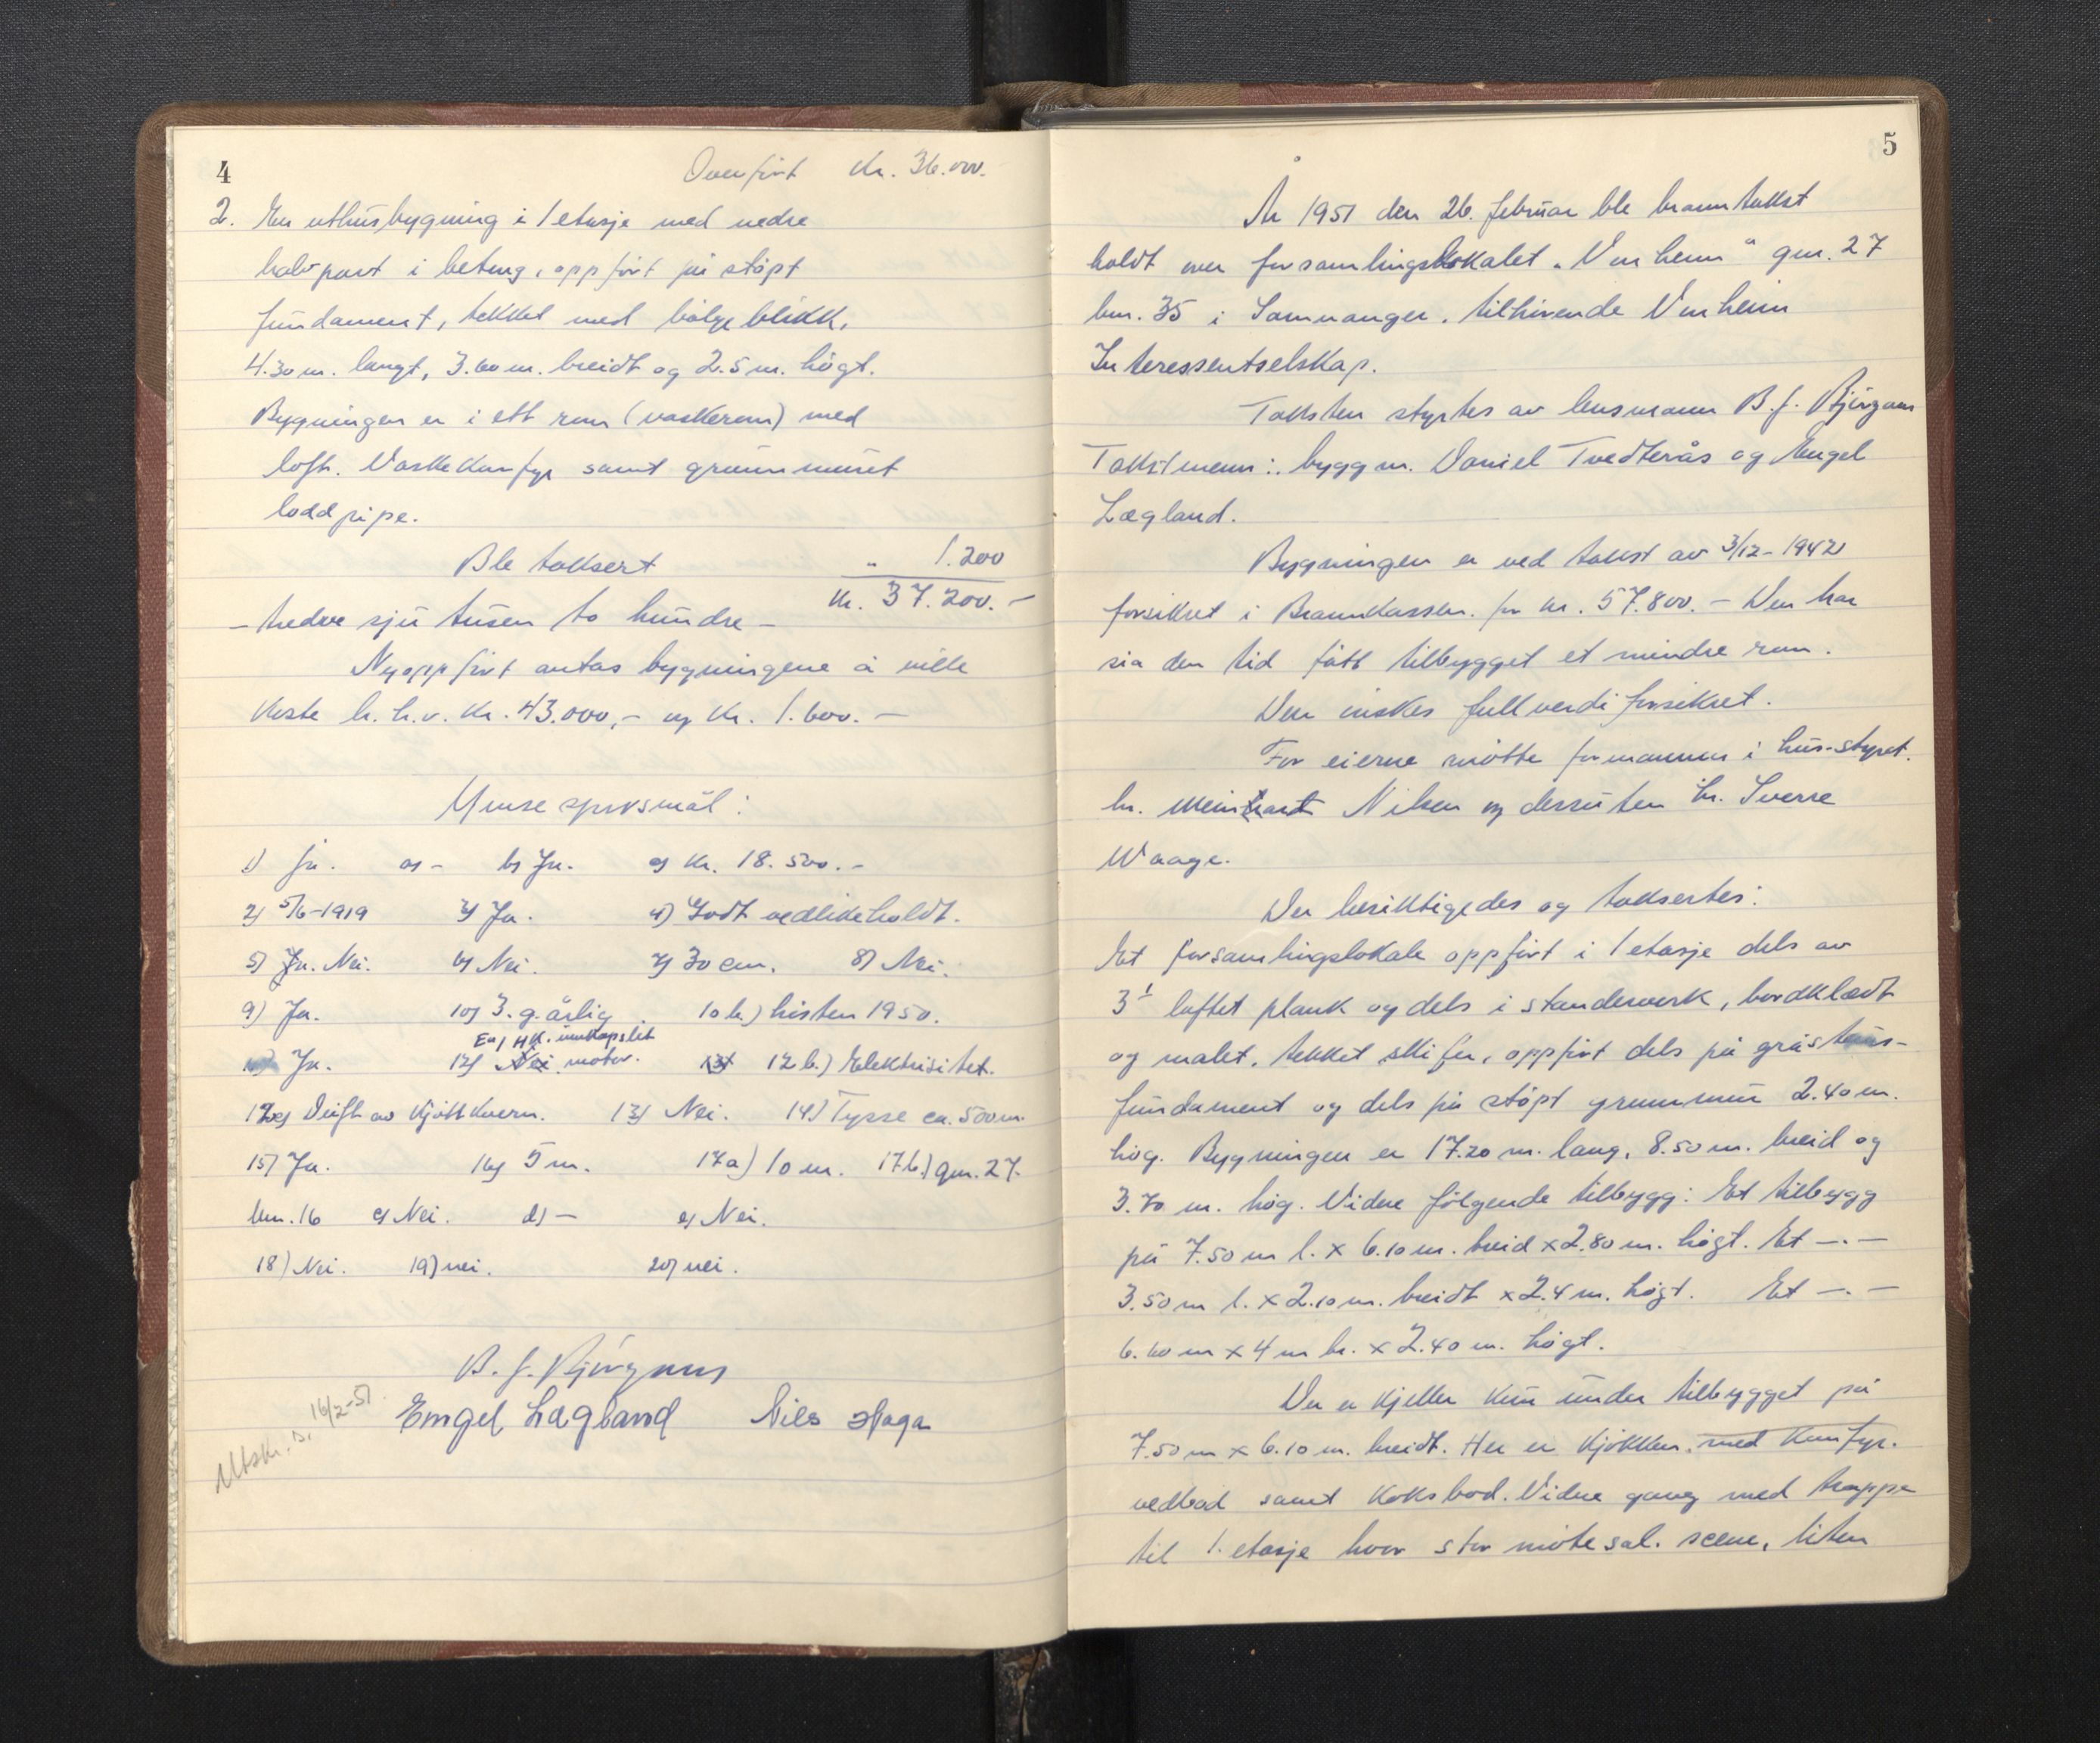 4
Overført Kr. 36.000.-
2. En uthusbygning i 1 etasje med nedre
halvpart i betong, oppført på støpt
fundament, tekket med bølgeblikk,
4.30 m. langt, 3.60 m. breidt og 2.5 m. høgt.
Bygningen er i ett rom (vaskerom) med
loft. Vaskekomfyr samt grunnmuret
loddpipe.
Ble taksert " 1.200
Kr. 37.200.-
- tredve sju tusen to hundre -
Nyoppført antas bygningene å ville
koste h.h.v. kr. 43.000,- og kr. 1.600.-
Ymse spørsmål:
1) ja. a) - b) Ja. c) Kr. 18.500.-
2) 5/6-1919 3) Ja. 4) Godt vedlikeholdt.
5) Ja. Nei. 6) Nei. 7) 30 cm. 8) Nei.
9) Ja. 10) 3. g. årlig. 10 b.) høsten 1950.
En 1 HK. innkapslet
11) Ja. 12) Nei motor. 13) 12 b.) Elektrisitet.
12c) Drift av kjøttkvern. 13) Nei. 14) Tysse ca. 500 m.
15) Ja. 16) 5 m. 17a) 10 m. 17b.) gnr. 27.
bnr. 16 c) Nei. d) - e) Nei.
18) Nei. 19) nei. 20) nei.
B. J. Bjørgum
Utskr. s. 16/2-51
Engel Lægland Nils Haga
5
År 1951 den 26. februar ble branntakst
holdt over forsamlingslokalet "Venheim" gnr. 27
bnr. 35 i Samnanger, tilhørende Venheim
Interessentselskap.
Taksten styrtes av lensmann B. J. Bjørgum
Takstmenn: byggm. Daniel Tvedterås og Engel
Lægland.
Bygningen er ved takst av 3/12-1942
forsikret i Brannkassen for kr. 57.800.- Den har
sia den tid fått tilbygget et mindre rom.
Den ønskes fullverdiforsikret.
For eierne møtte formannen i hus-styret.
hr. Meinhart Nilsen og dessuten hr. Sverre
Waage.
Der besiktigedes og taksertes:
Et forsamlingslokale oppført i 1 etasje dels av
3" laftet plank og dels i standerverk, bordklædt
og malet, tekket skifer, oppført dels på gråsteins-
fundament og dels på støpt grunnmur 2.40 m.
høg. Bygningen er 17.20 m. lang, 8.50 m. breid og
3.70 m. høg. Videre følgende tilbygg: Et tilbygg
på 7.50 m l. x 6.10 m. breid x 2.80 m. høgt. Et -.-
3.50 m l. x 2.10 m. breidt x 2.4 m. høgt. Et -.-
6.60 m x 4 m br. x 2.40 m. høgt.
Der er kjeller kun under tilbygget på
7.50 m x 6.10 m. breidt. Her er kjøkken, med komfyr.
vedbod samt koksbod. Videre gang med trappe
til 1. etasje hvor stor møtesal. scene, liten